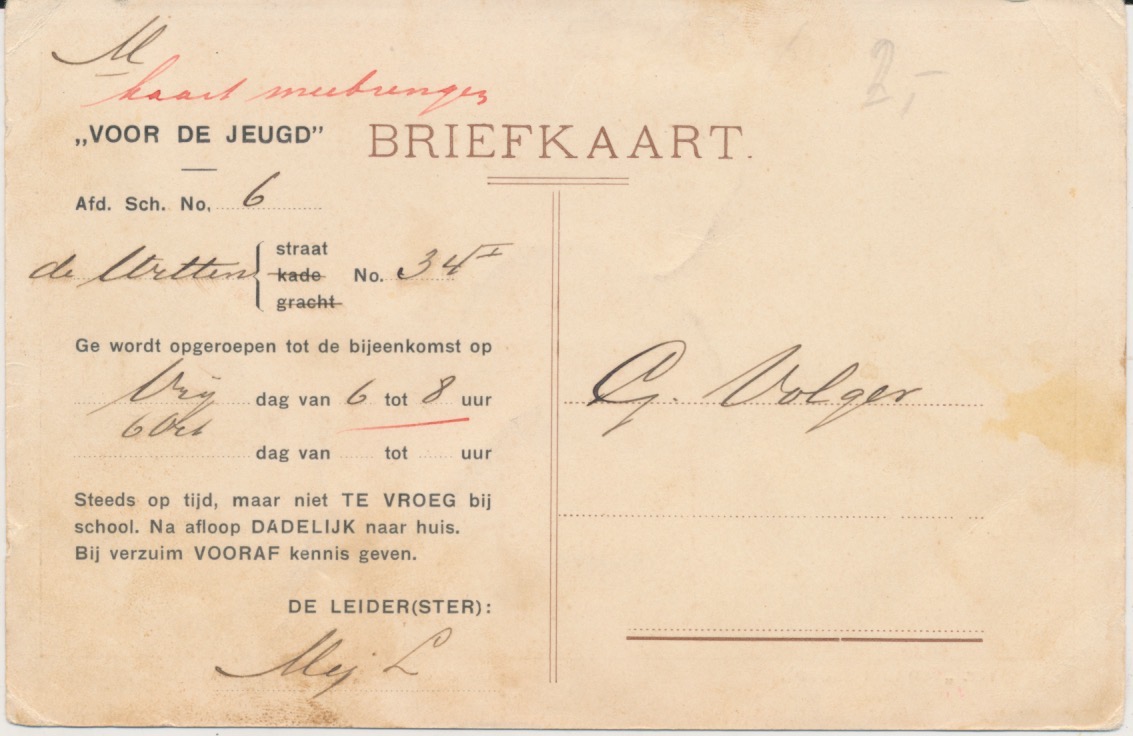 M
kaart meebrengen
2,-
„VOOR DE JEUGD”
BRIEFKAART.
Afd. Sch. No. 6
de Wetten
straat
kade
gracht
No. 34 I
Ge wordt opgeroepen tot de bijeenkomst op
Vrij dag van 6 tot 8 uur
6 Oct
dag van tot uur
Steeds op tijd, maar niet TE VROEG bij
school. Na afloop DADELIJK naar huis.
Bij verzuim VOORAF kennis geven.
DE LEIDER(STER):
Mej L
G. Volger